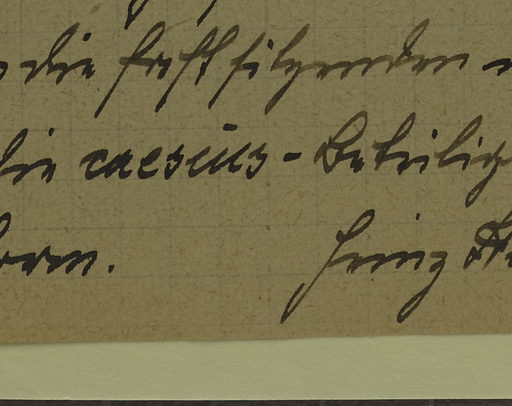 die festsitzenden
die caesius-Beteilig
Heinz